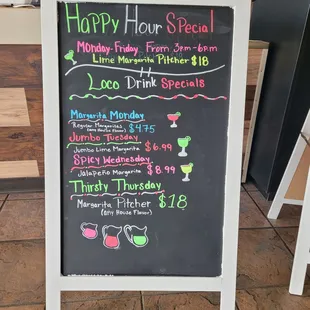 Happy Hour Special
Monday-Friday From 3pm-6pm
Lime Margarita Pitcher $18
Loco Drink Specials
Margarita Monday
Regular Margaritas
(Any House Flavor) $4.75
Jumbo Tuesday
Jumbo Lime Margarita $6.99
Spicy Wednesday
Jalapeño Margarita $8.99
Thirsty Thursday
Margarita Pitcher $18
(Any House Flavor)